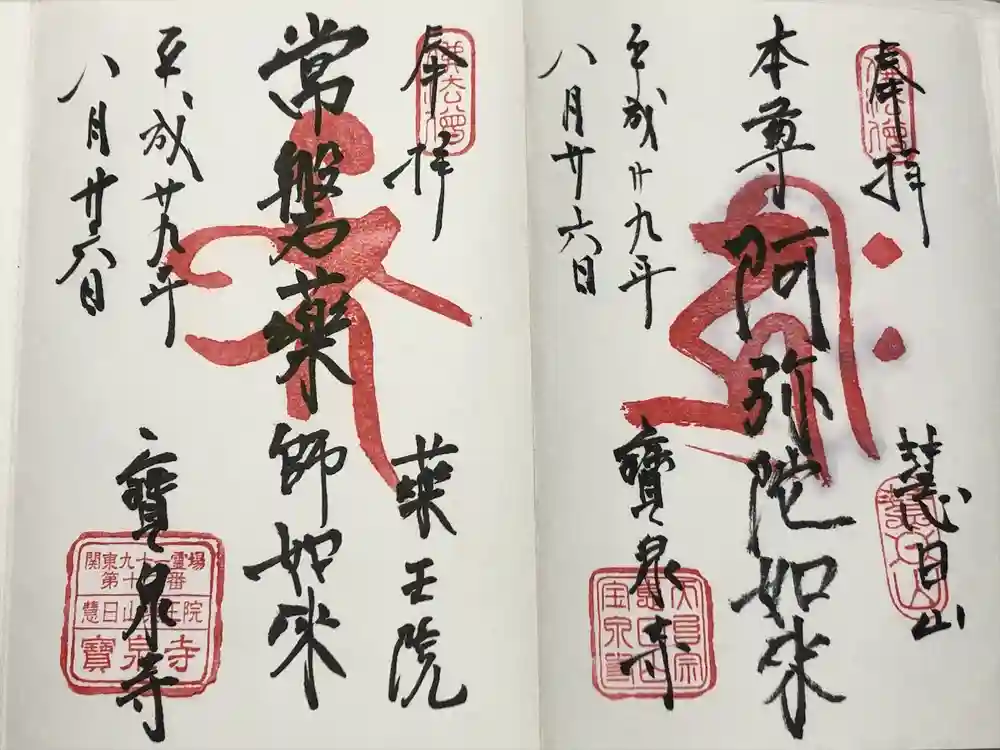 奉拝
本尊阿弥陀如来
平成廿九年
八月廿六日
慧日山
寳泉寺
奉拝
常磐薬師如来
平成廿九年
八月廿六日
薬王院
寳泉寺
関東九十一霊場
慧日山薬王院
寳泉寺